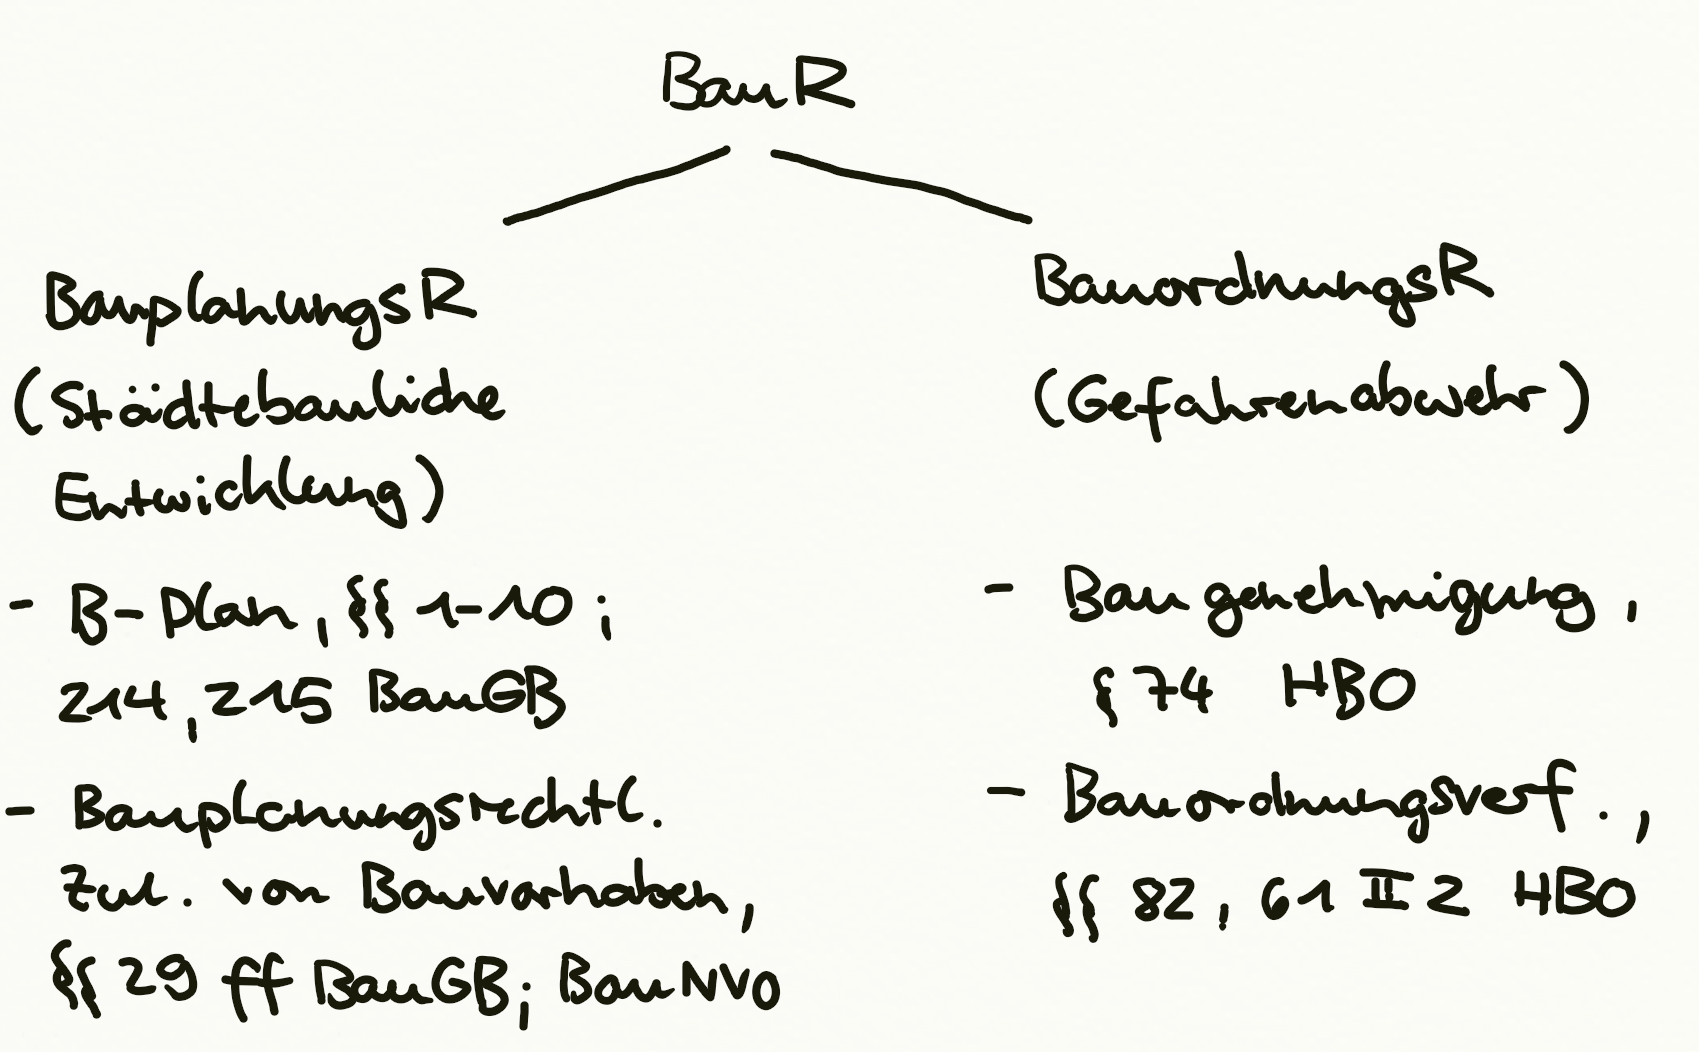 BauR
BauplanungsR
(Städtebauliche
Entwicklung)
- B-Plan, §§ 1-10;
214, 215 BauGB
- Bauplanungsrechtl.
Zul. von Bauvorhaben,
§§ 29 ff BauGB; BauNVO
BauordnungsR
(Gefahrenabwehr)
- Baugenehmigung,
§ 74 HBO
- Bauordnungsverf.,
§§ 82, 61 II 2 HBO